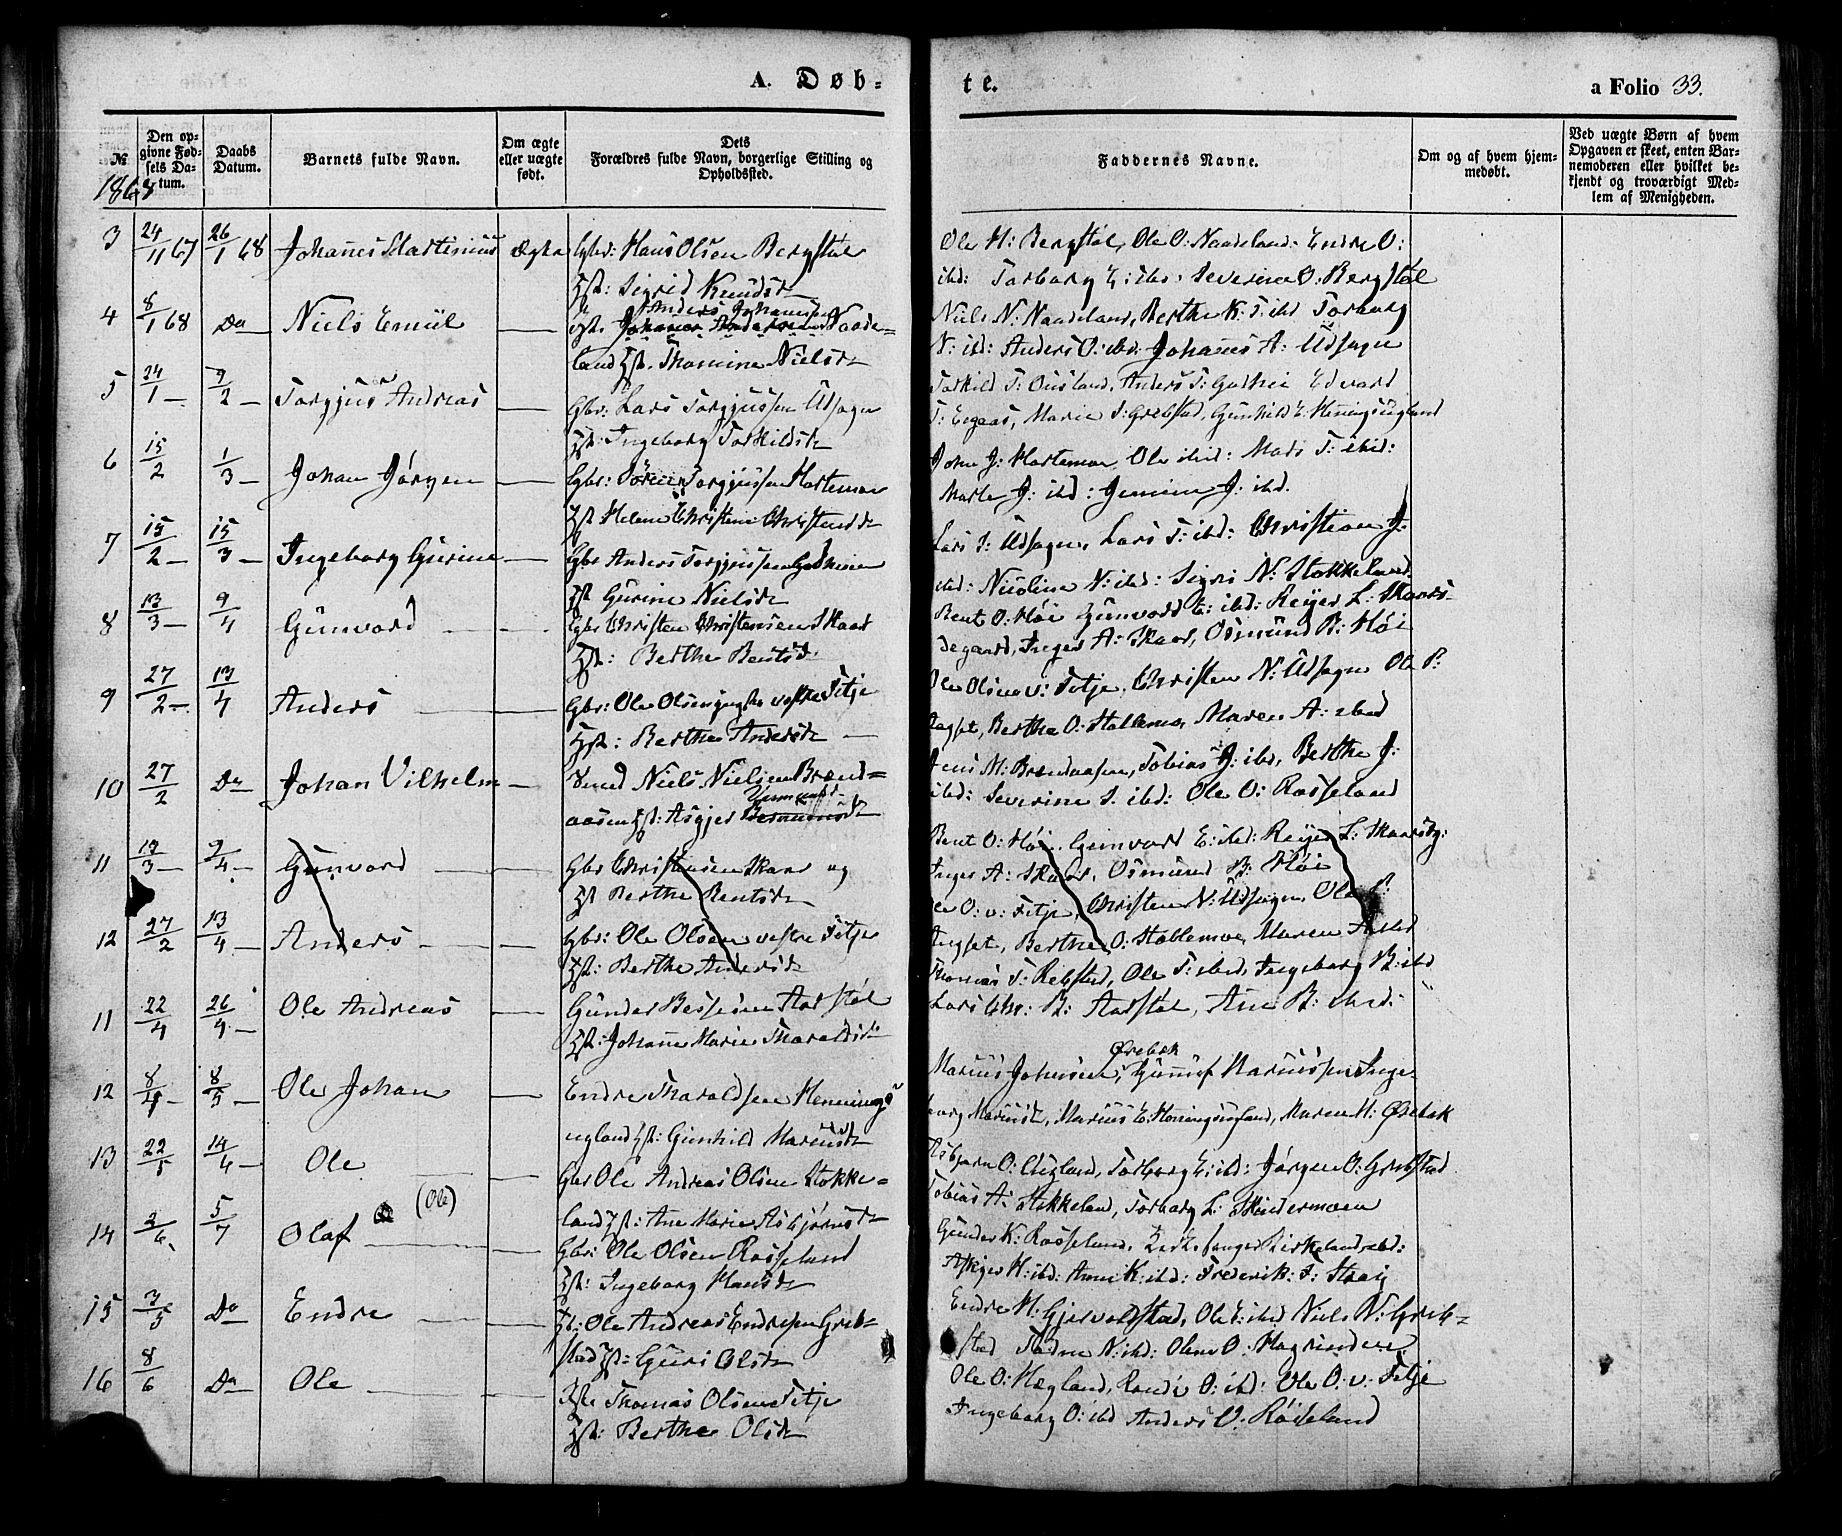 A. Døb-
te.
a Folio 33.
№
Den op-
givne Fød-
sels Da-
tum.
Daabs
Datum.
Barnets fulde Navn.
Om ægte
eller uægte
født.
Dets
Forældres fulde Navn, borgerlige Stilling og
Opholdssted.
Faddernes Navne.
Om og af hvem hjem-
medøbt.
Ved uægte Børn af hvem
Opgaven er skeet, enten Bar-
nemoderen eller hvilket be-
kjendt og troværdigt Med-
lem af Menigheden.
1868
3 24/11 67 26/1 68 Johanes Martinius ægte Gbr: Hans Olsen Bergstøl
Hst: Sigrid Knudsd
Ole H: Bergstøl, Ole O: Naadeland: Endre O:
ibd: Torborg E: ibd: Severine O: Bergstøl
4 8/1 68 Do Niels Emiil — Anders Johannesen
Johanes Andersen Naade-
land Hst. Thomine Nielsd
Niels N: Naadeland, Berthe K: T: ibd Torborg
N: ibd: Anders O: ibd: Johanes A: Udsogn
5 24/1 — 9/2 — Torgjus Andreas — Gbr: Lars Torgjussen Udsogn
Hst: Ingeborg Torkildsd
Torkild T: Ousland, Anders T: Edvard
T: Marie T: Grebstad, Gunhild E: Heningsugland
6 15/2 1/3 — Johan Jørgen — Gbr: Søren Torgjussen Hortemoe
Hst Helene Christine Christensd
John J: Hortemoe, Ole ibid: Mads T: ibid:
J: ibd: J: ibd.
7 15/2 — 15/3 — Ingeborg Gurine — Gbr Anders Torgjussen
Hst Gurine Nielsd
Lars T: Udsogn, Lars T: ibd: Christian J:
ibd: Nicoline N: ibd: Sigri N: Stokkeland
8 13/3 — 9/4 Gunvord — Gbr Christen Christensen Skaar
Hst: Berthe Bentsd
Bent O: Høi Gunvord E: ibd: Reijer L: Skaars-
degaard, Inger A: Skaar, Osmund B: Høi
9 27/2 — 13/4 Anders — Gbr: Ole Olsen vestre Fitje
Hst: Berthe Andersd —
Ole Olsen v: Fitje, Christen N: Udsogn Ole P:
Berthe O: Stallemo, Maren A: ibd
10 27/2 Do Johan Vilhelm — Niels Nielsen Brend-
aasen Hst: Asgjer
M: Brendaasen, Tobias J: ibd, Berthe J:
ibd: Severine S. ibd: Ole O: Rosseland
11 13/3 — 9/4 — Gunvord — Gbr Christensen Skaar og
Hst Berthe Bentsd
Bent O: Høi, Gunvord E: ibd: Reijer L: Skaarsdg:
Inger A: Skaar, Osmund B: Høi
12 27/2 13/4 — Anders — Gbr: Ole Olsen vestre Fitje
Hst: Berthe Andersd
O: v: Fitje, Christen N: Udsogn, Ole P:
Berthe O: Stallemoe, Maren A: ibd
11 22/4 26/4 — Ole Andreas — Gunder Bessesen Aarstøl
Hst: Johanne Marie Tharaldsd
Thomas T: Rebstad, Ole T: ibd, Ingeborg B: ibd
Lars Chr: B: Aarstøl, Ane B: ibid:
12 8/4 — 8/5 — Ole Johan — Endre Tharaldsen Hennings-
ugland Hst: Gunhild Mariusd
Ørebæk
Marius Johnsen, Gunuf Mariussen Inge-
borg Mariusd, Marius E: Heningsugland, Maren M: Ørebæk
13 22/5 14/6 — Ole — Gbr Ole Andreas Olsen Stokke-
land Hst: Ane Marie Asbjørnsd
Asbjørn O: Ougland, Torborg E: ibd: Jørgen O: Grebstad
Tobias A: Stokkeland, Torborg L: Skindermoen
14 2/6 5/7 Olaf (Ole) — Gbr: Ole Olsen Rosseland
Hst: Ingeborg Hansd
Gunder K: Rosseland, Kirkesanger Kirkeland ibd:
Askjer H: ibd: Anne K: ibd: Frederik: T: Straj
15 3/5 Do Endre — Hb: Ole Andreas Endresen Greb-
stad Hst: Guri Olsd
Endre H: Gjervoldstad, Ole E: ibd Niels N: Greb-
stad N: ibd: Olene O: Hagrinden
16 8/6 Do Ole — Thomas Olsen Fitje
Hst: Berthe Olsd
Ole O: Høgland, Randi O: ibd: Ole O: v: Fitje
Ingeborg O: ibd Anders O: Røiseland